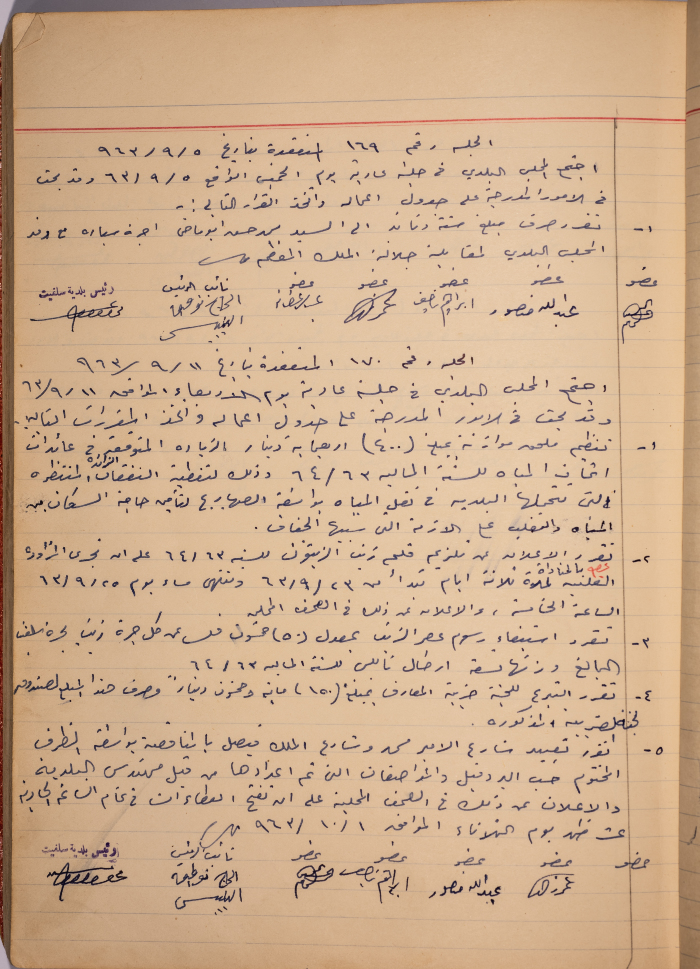 الجلسه رقم ١٦٩ المنعقدة بتاريخ ٩٦٣/٩/٥
اجتمع المجلس البلدي في جلسة عادية يوم الخميس الواقع ٦٣/٩/٥ وقد بحث
في الامور المدرجة على جدول اعماله واتخذ القرار التالي :-
١- تقرر صرف مبلغ ستة دنانير الى السيد محمد اجرة سياره مع وفد
المجلس البلدي لمقابلة جلالة الملك المعظم
عضو عضو عضو عضو عضو نائب الرئيس رئيس بلدية سلفيت
عبدالله منصور ابراهيم الحاج توفيق
الجلسه رقم ١٧٠ المنعقدة بتاريخ ٩٦٣/٩/١١
اجتمع المجلس البلدي في جلسة عادية يوم الاربعاء الموافق ٦٣/٩/١١
وقد بحث في الامور المدرجة على جدول اعماله واتخذ المقررات التاليه
١- تنظيم ملحق موازنة بمبلغ (٤٠٠) اربعماية دينار الزياده المتوقعة في عائدات
اثمان المياه للسنة الماليه ٦٤/٦٣ وذلك لتغطية النفقات الزائدة المنتظره
التي تتحملها البلديه في نقل المياه بواسطة الصهاريج لتأمين حاجة السكان من
المياه والتغلب على الازمة التي سببها الجفاف .
٢- تقرر الاعلان عن تلزيم قلم زيت الزيتون للسنه ٦٤/٦٣ على ان تجري المزاودة
العلنية بالمناداة لمدة ثلاثة ايام تبدأ من ٦٣/٩/٢٣ وتنتهي مساء يوم ٦٣/٩/٢٥
الساعة الخامسة ، والاعلان عن ذلك في الصحف المحليه
٣- تقرر استيفاء رسوم عصر الزيت بمعدل (٥٠) خمسون فلس عن كل جرة زيت
البالغ وزنها تسعة ارطال نابلس للسنة الماليه ٦٤/٦٣
٤- تقرر التبرع للجنة ضريبة المعارف بمبلغ (١٥٠) ماية وخمسون ديناراً وصرف هذا المبلغ لصندوق
لجنة الضريبه المذكوره .
٥- تقرر تعبيد شارع الامير محمد وشارع الملك فيصل بالمناقصة بواسطة الظرف
المختوم حسب البروفيل والمواصفات التي تم اعدادها من قبل مهندس البلدية
والاعلان عن ذلك في الصحف المحلية على ان تفتح العطاءات في تمام الساعه الحادية
عشر ظهر يوم الثلاثاء الموافق ٩٦٣/١٠/١
عضو عضو عضو عضو عضو نائب الرئيس رئيس بلدية سلفيت
عبدالله منصور ابراهيم الحاج توفيق